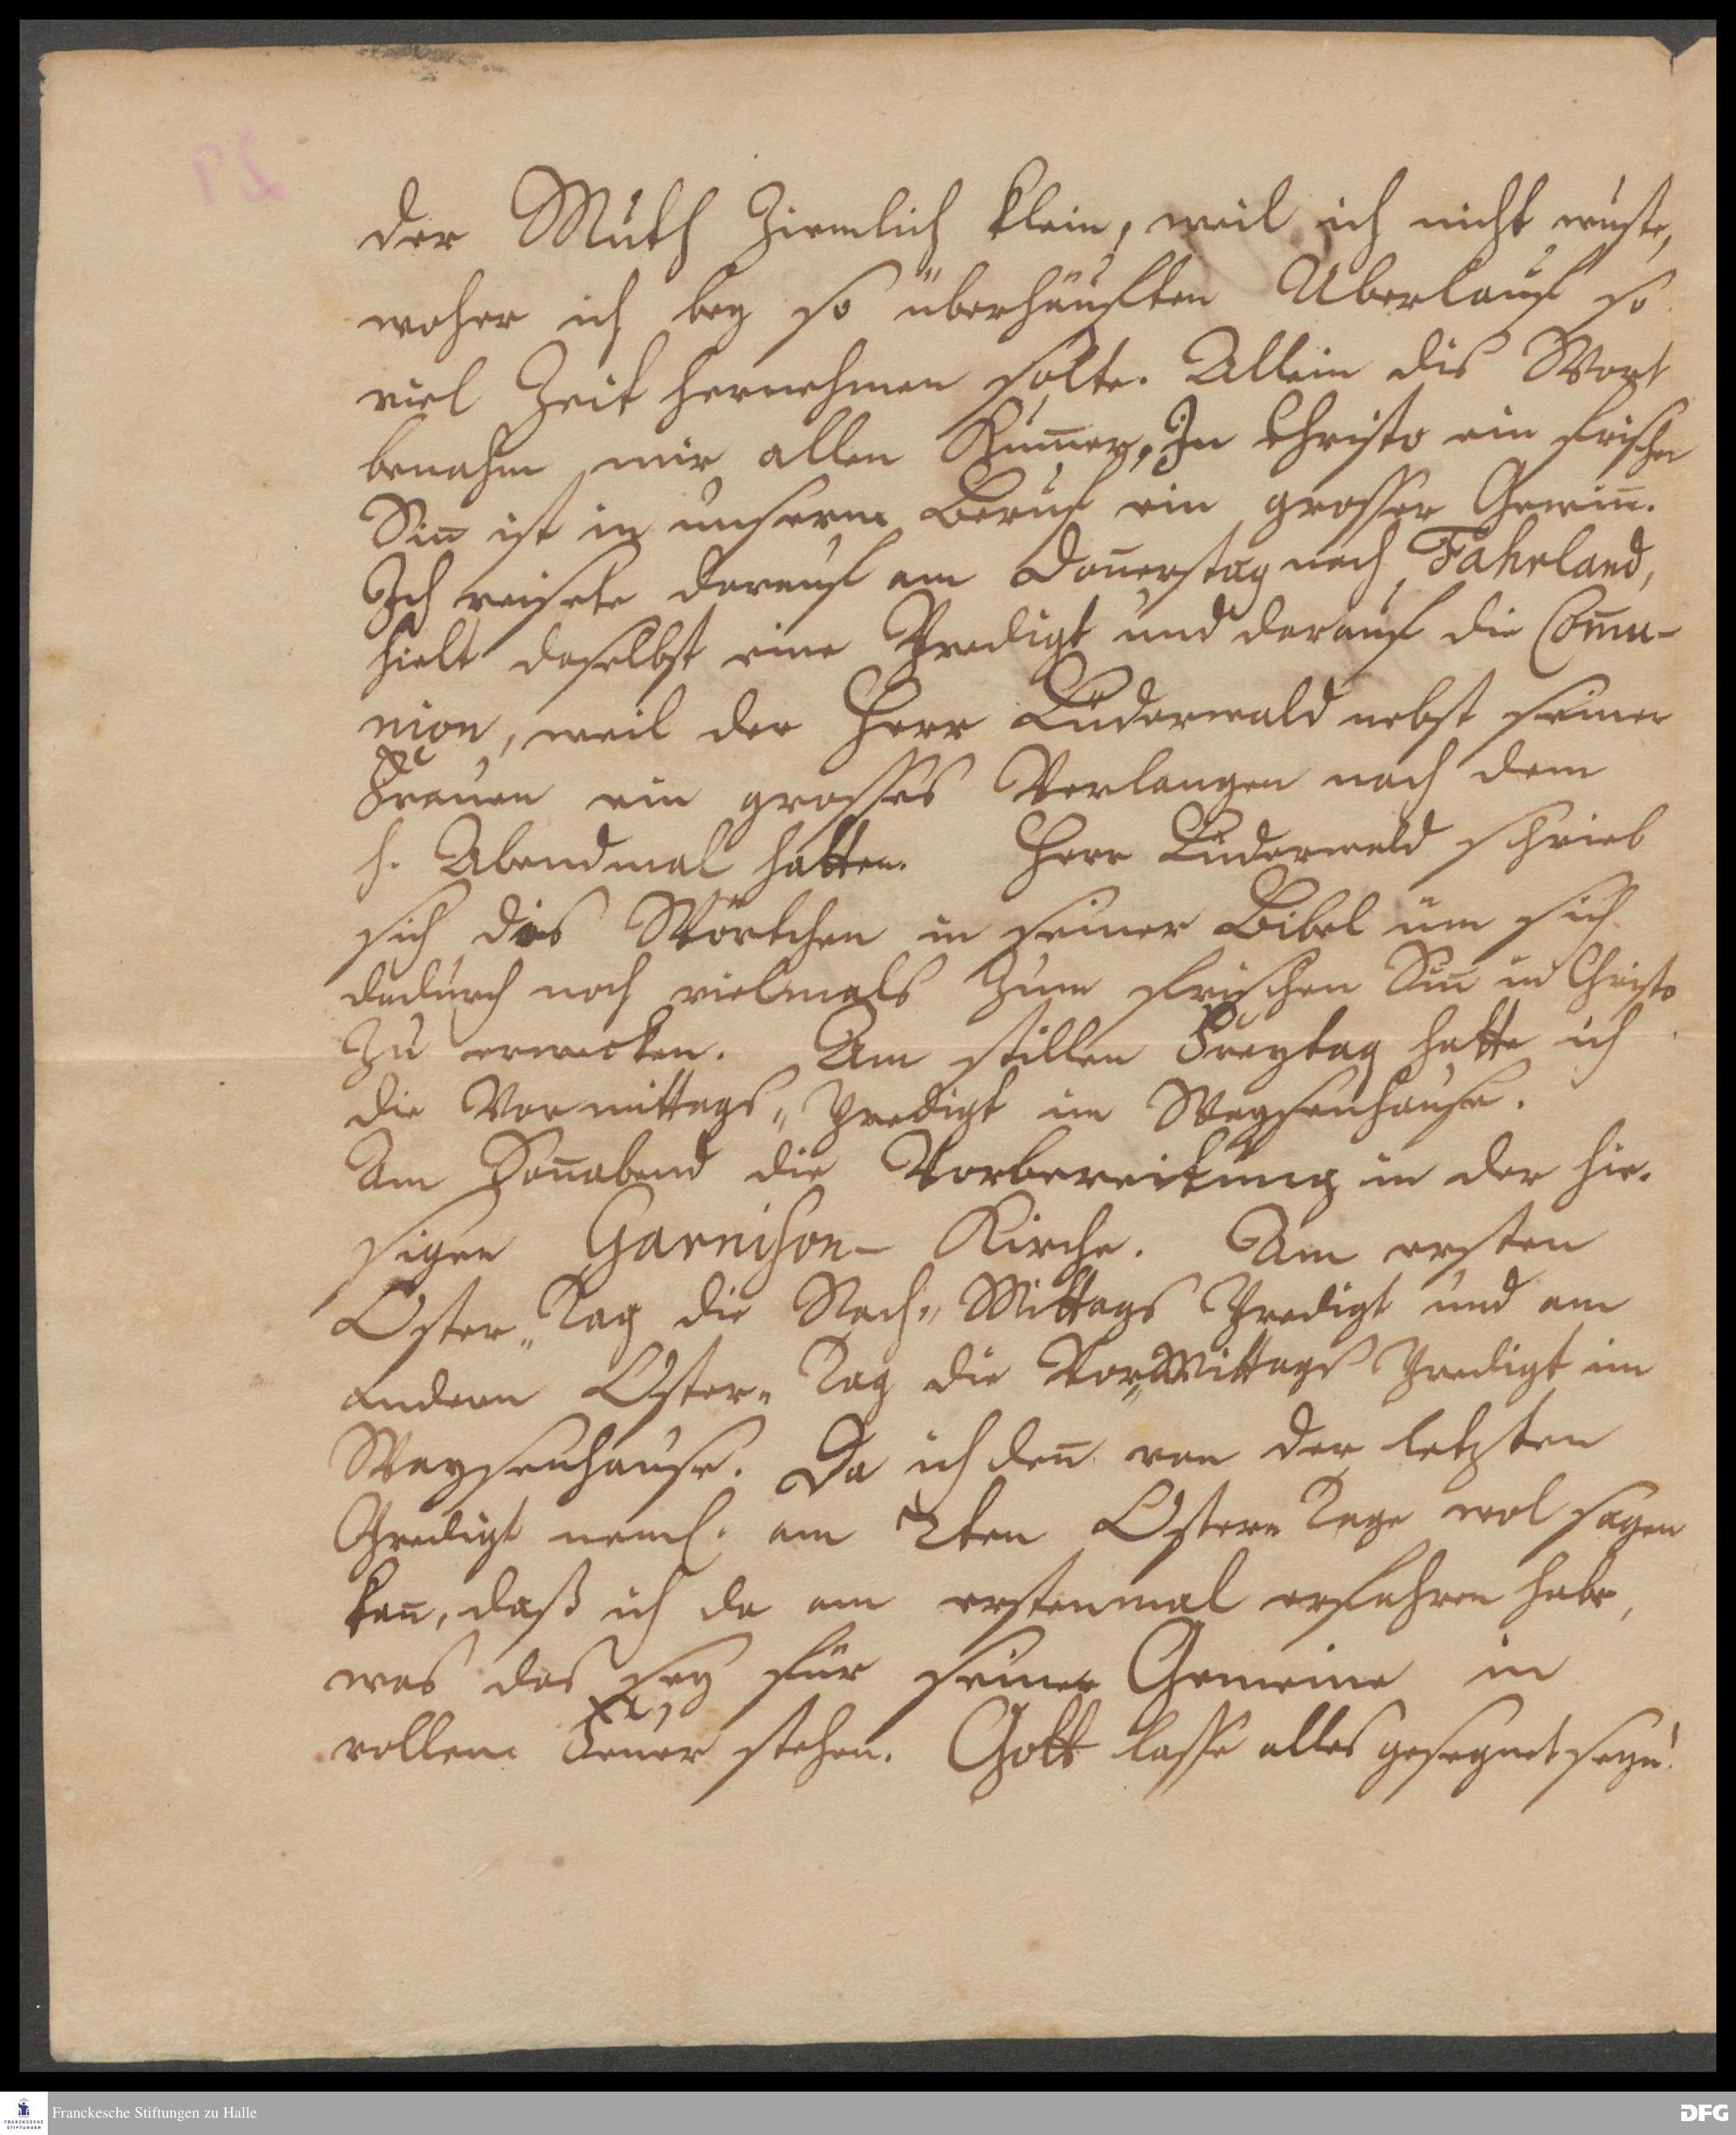 der Muth ziemlich klein, weil ich nicht wuste,
woher ich bey so überhäuften Uberlauf so
viel Zeit hernehmen solte. Allein dis Wort
benahm mir allen Kum̅er, In Christo ein frischer
Sin̅ ist in unserm Beruf ein grosser Gewin̅.
Ich reisete darauf am Don̅erstag nach Fahrland,
hielt daselbst eine Predigt und darauf die Com̅u-
nion, weil der Herr Lüderwald nebst seiner
Frauen ein grosses Verlangen nach dem
h. Abendmal hatten. Herr Lüderwald schrieb
sich dis Wörtchen in seiner Bibel um sich
dadurch noch vielmals zum frischen Sin̅ in Christo
zu erwecken. Am stillen Freytag hatte ich
die Vormittags„ Predigt im Waysenhause.
Am Son̅abend die Vorbereitung in der hie-
sigen Garnison- Kirche. Am ersten
Oster„ Tag die Nach„ Mittags Predigt und am
andern Oster„ Tag die Vor„Mittags Predigt im
Waysenhause. Da ich den̅ von der letzten
Predigt neml. am 2ten Oster„ Tage wol sagen
kan̅, daß ich da am erstenmal erfahren habe,
was das sey für seiner Gemeine in
vollem Feuer stehen. Gott lasse alles gesegnet seyn.
29
Franckesche Stiftungen zu Halle
FRANCKESCHE STIFTUNGEN
DFG